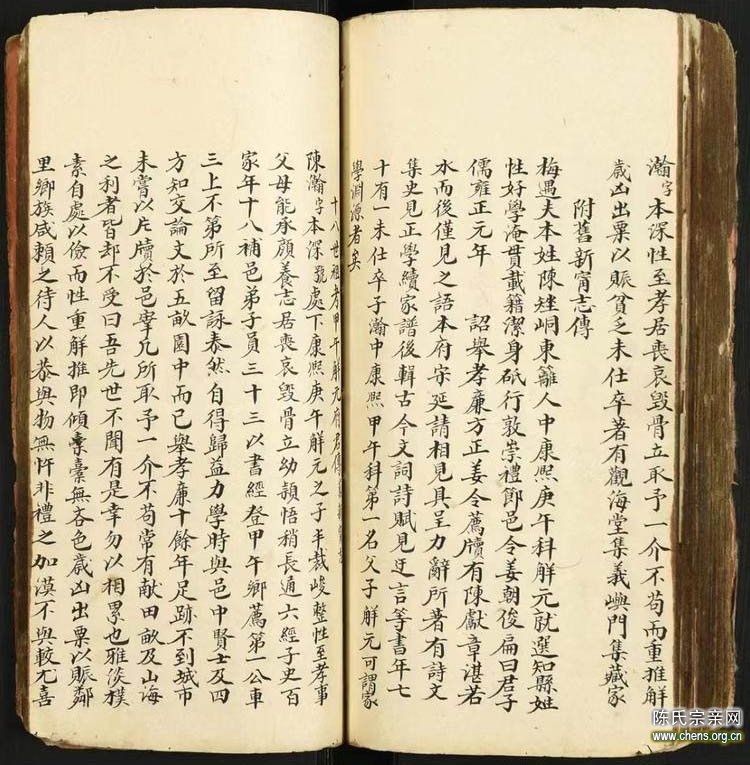 瀚字本深性至孝居喪哀毀骨立取予一介不苟而重推解
歲凶出粟以賑貧乏未仕卒著有觀海堂集義嶼門集藏家
附舊新甯志傳
梅遇夫本姓陳矬峒東籬人中康熙庚午科解元就選知縣姓
性好學淹貫載籍潔身砥行敦崇禮節邑令姜朝俊扁曰君子
儒雍正元年 詔舉孝廉方正姜令薦牘有陳獻章湛若
水而後僅見之語本府宋延請相見具呈力辭所著有詩文
集史見正學續家譜後輯古今文詞詩賦見迂言等書年七
十有一未仕卒子瀚中康熙甲午科第一名父子解元可謂家
學淵源者矣
十八世祖考甲午解元府君傳
陳瀚字本深號處下康熙庚午解元之子丰裁峻整性至孝事
父母能承顏養志居喪哀毀骨立幼頴悟稍長通六經子史百
家年十八補邑弟子員三十三以書經登甲午鄉薦第一公車
三上不第所至留詠泰然自得歸益力學時與邑中賢士及四
方知交論文於五畝園中而已舉孝廉十餘年足跡不到城市
未嘗以片牘於邑宰凡所取予一介不苟常有献田畝及山海
之利者皆却不受曰吾先世不聞有是幸勿以相累也雅淡樸
素自處以儉而性重解推即傾囊橐無吝色歲凶出粟以賑鄰
里鄉族咸頼之待人以恭與物無忤非禮之加漠不與較尤喜
陈氏宗亲网
www.chens.org.cn